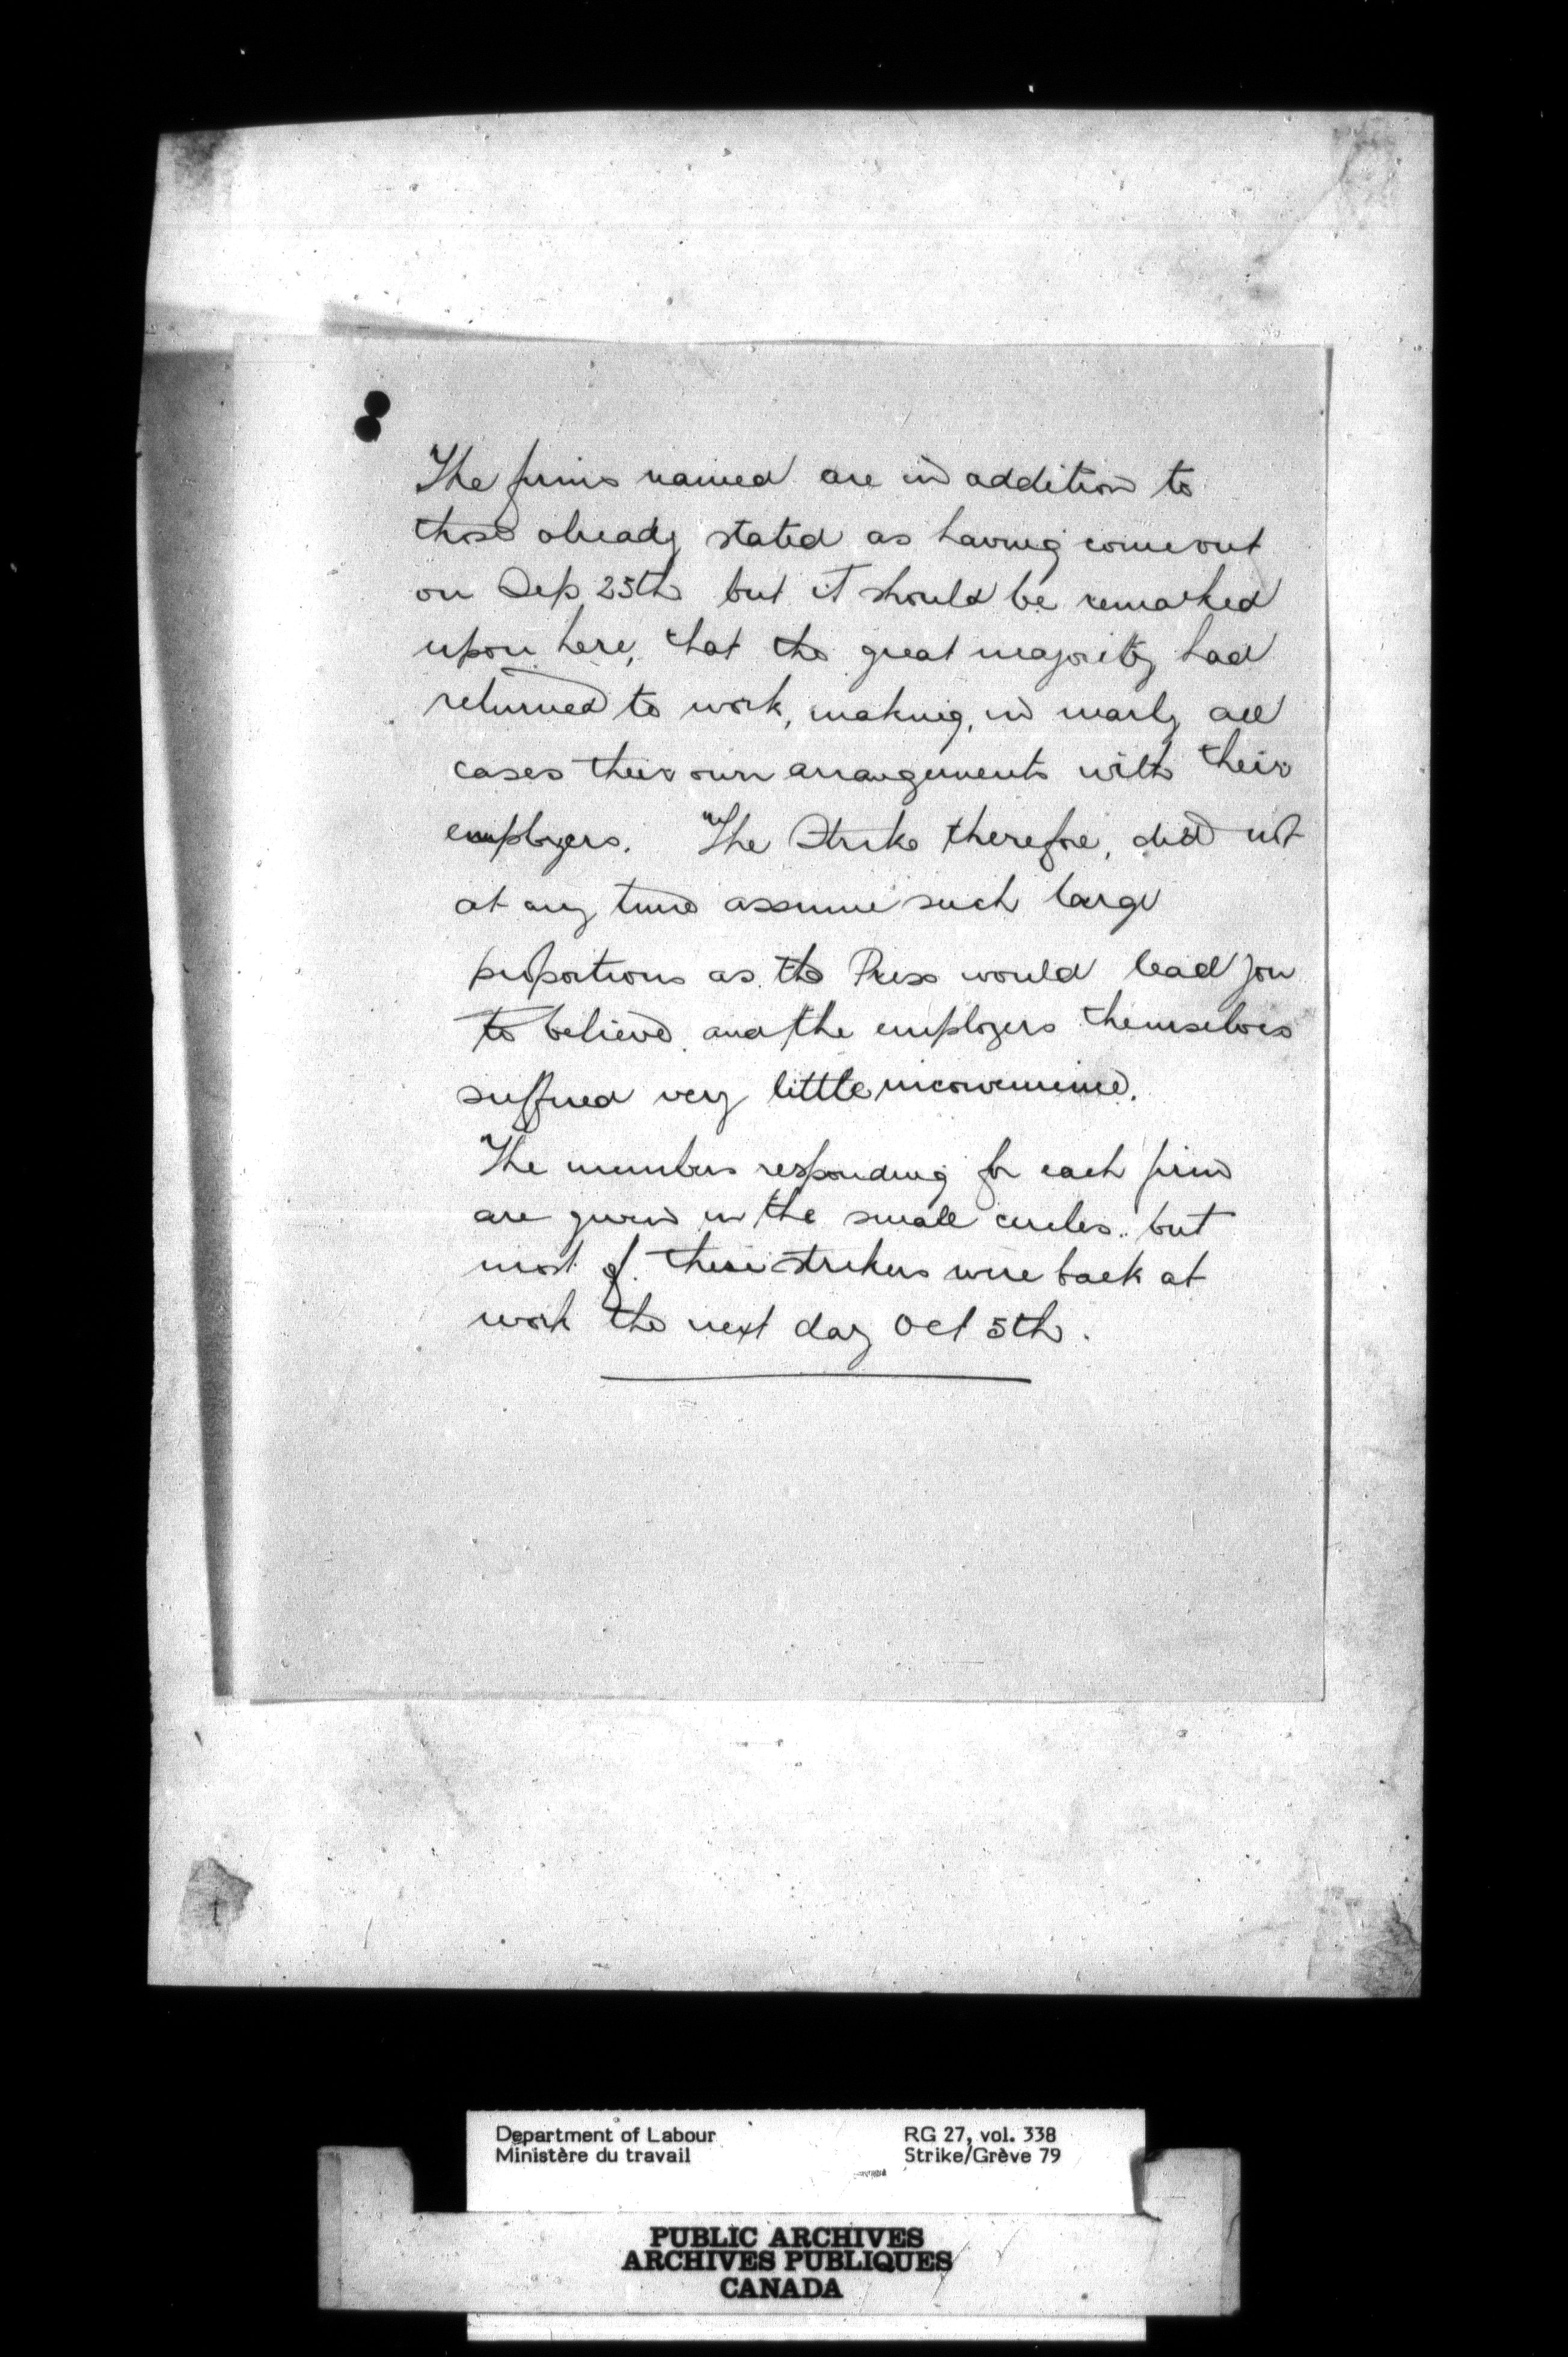 The firms named are in addition to
those already stated as having come out
on Sep 25th but it should be remarked
upon here, that the great majority had
returned to work, making, in nearly all
cases their own arrangements with their
employers. The Strike therefore, did not
at any time assume such large
proportions as the Press would lead you
to believe and the employers themselves
suffered very little inconvenience.
The numbers responding for each firm
are given in the small circles.. but
most of these strikers were back at
work the next day Oct 5th.
Department of Labour RG 27, vol. 338
Ministère du travail Strike/Grève 79
PUBLIC ARCHIVES
ARCHIVES PUBLIQUES
CANADA